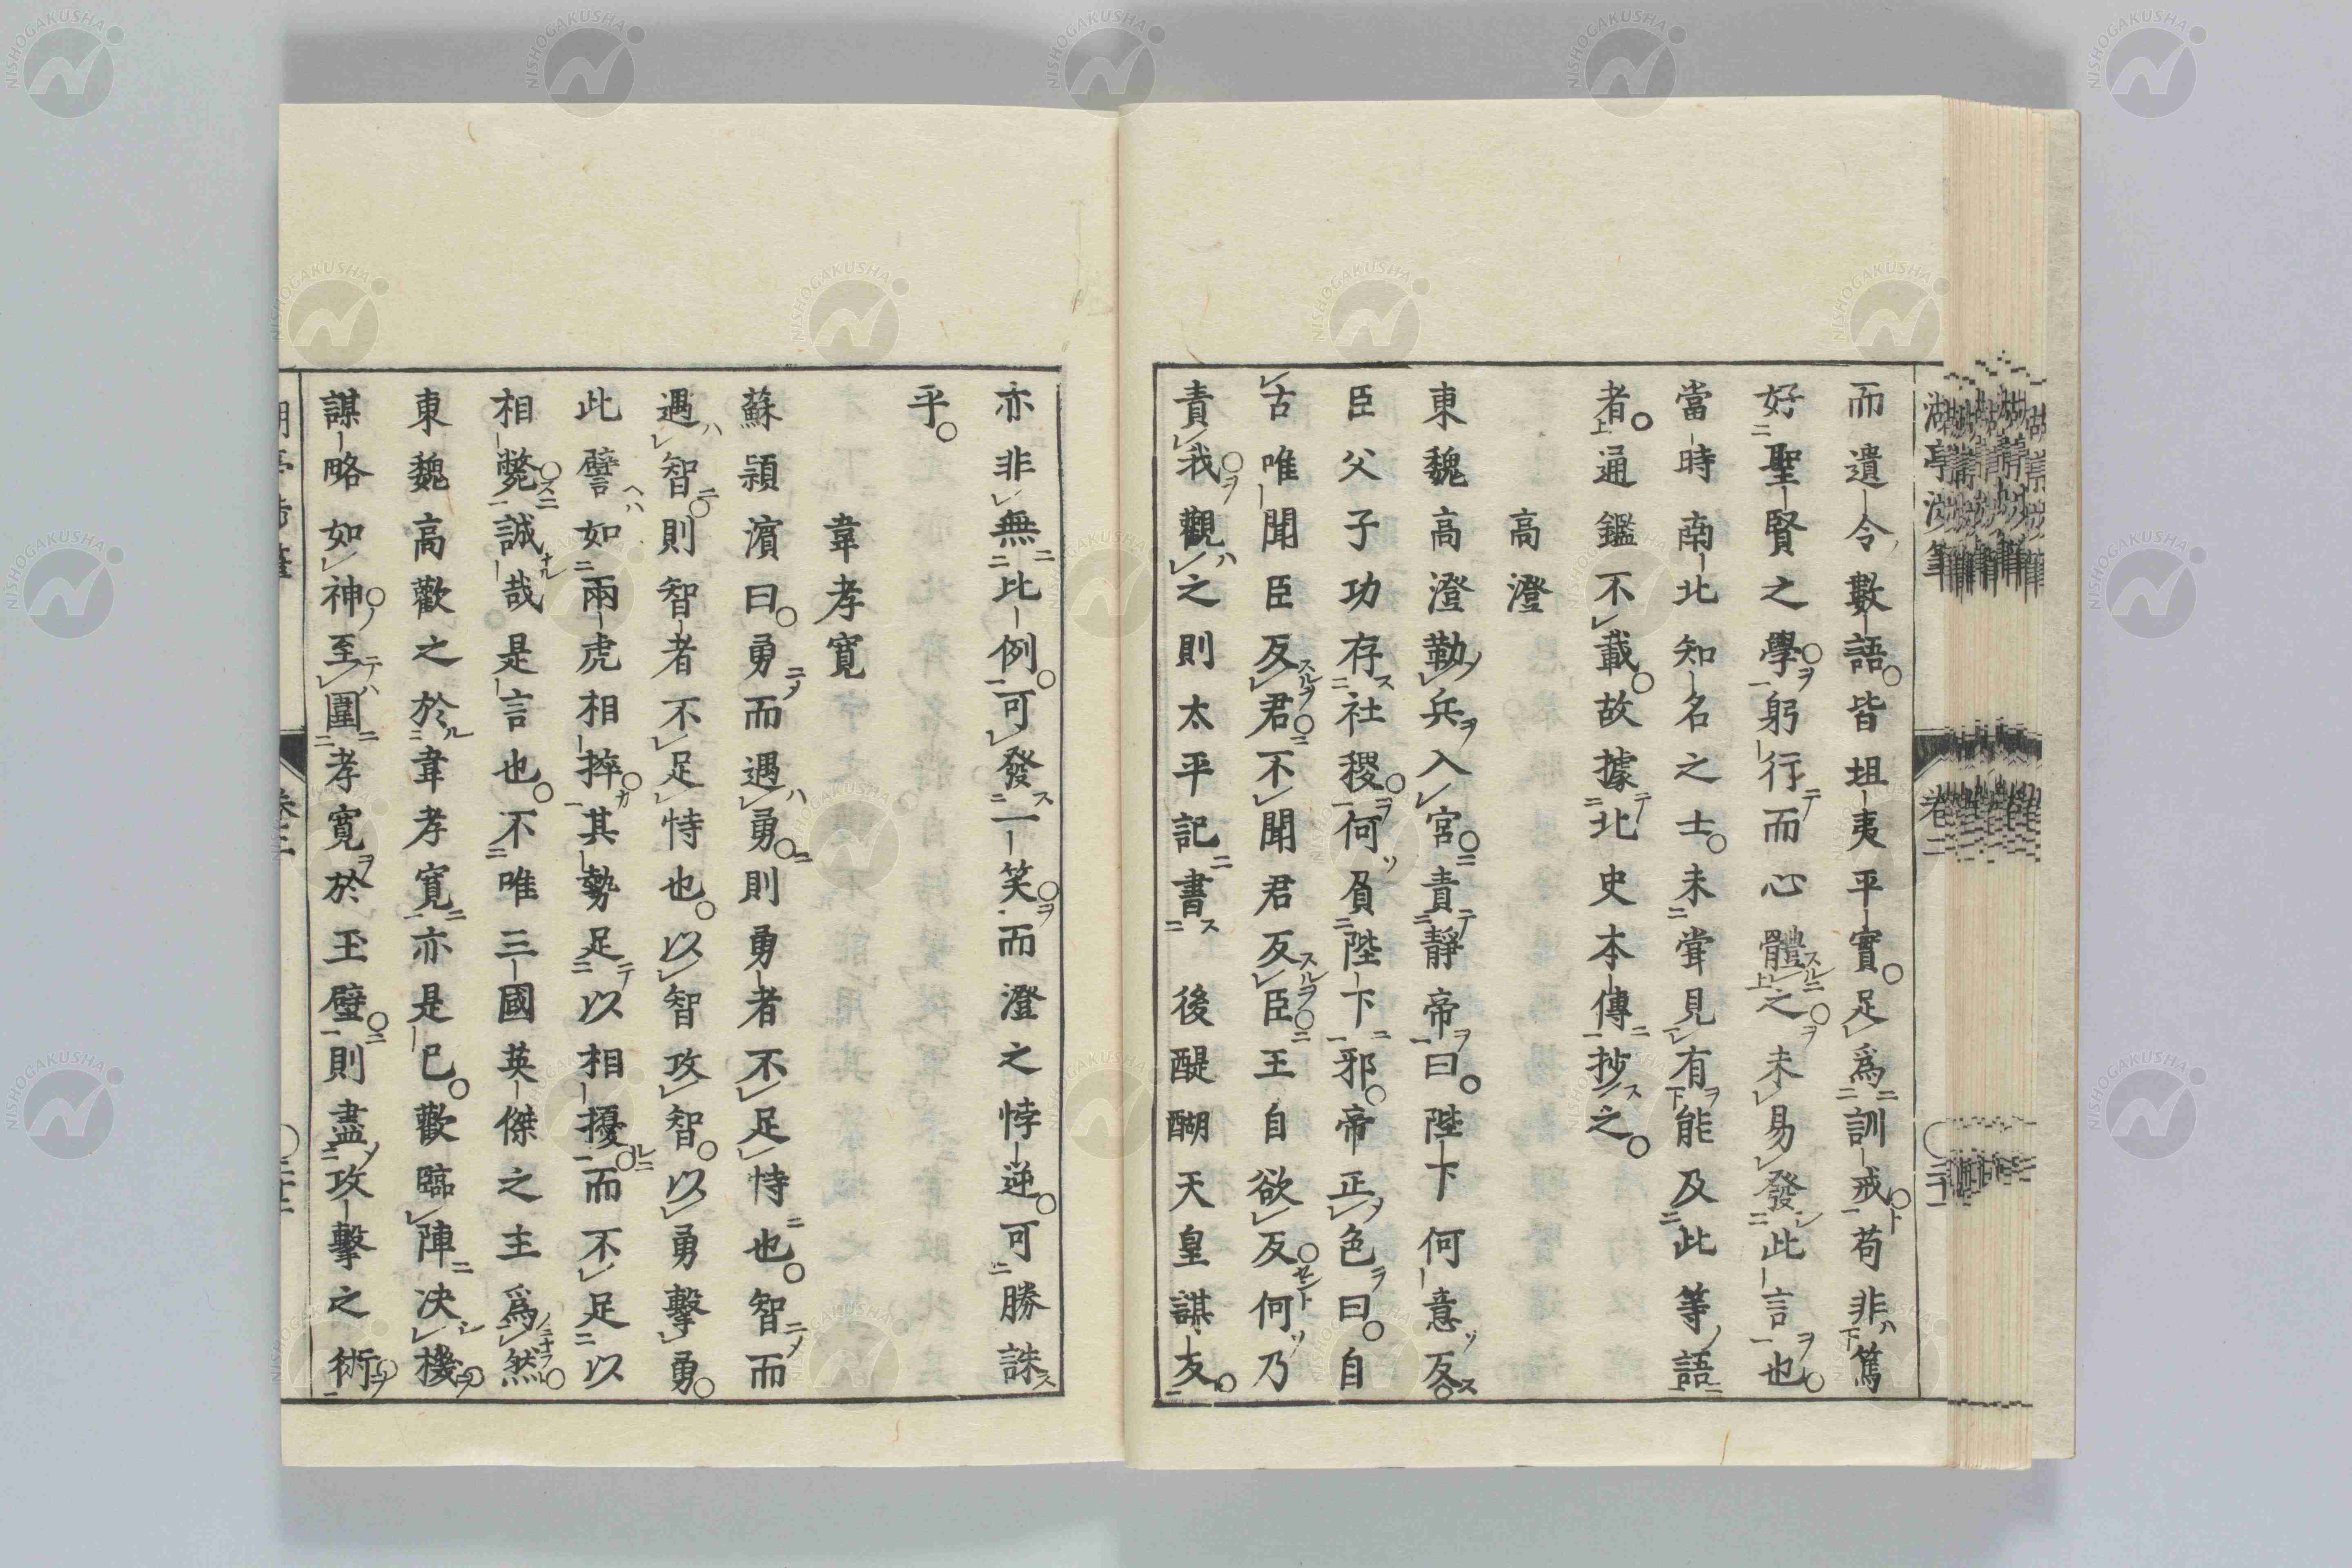 而遺令數語。皆坦夷平實。足爲訓戒。苟非篤
好聖賢之學。躬行而心體之。未易發此言也。
當時南北知名之士。未嘗見有能及此等語
者。通鑑不載。故據北史本傳抄之。
高澄
東魏高澄勒兵入宮。責靜帝曰。陛下何意反。
臣父子功存社稷。何負陛下邪。帝正色曰。自
古唯聞臣反君。不聞君反臣。王自欲反。何乃
責我。觀之則太平記書後醍醐天皇謀反。
亦非無比例。可發一笑。而澄之悖逆。可勝誅
乎。
韋孝寬
蘇潁濱曰。勇而遇勇。則勇者不足恃也。智而
遇智。則智者不足恃也。以智攻智。以勇擊勇。
此譬如兩虎相捽。其勢足以相擾。而不足以
相斃。誠哉是言也。不唯三國英傑之主爲然。
東魏高歡之於韋孝寬亦是已。歡臨陣決機。
謀略如神。至圍孝寬於玉璧。則盡攻擊之術。